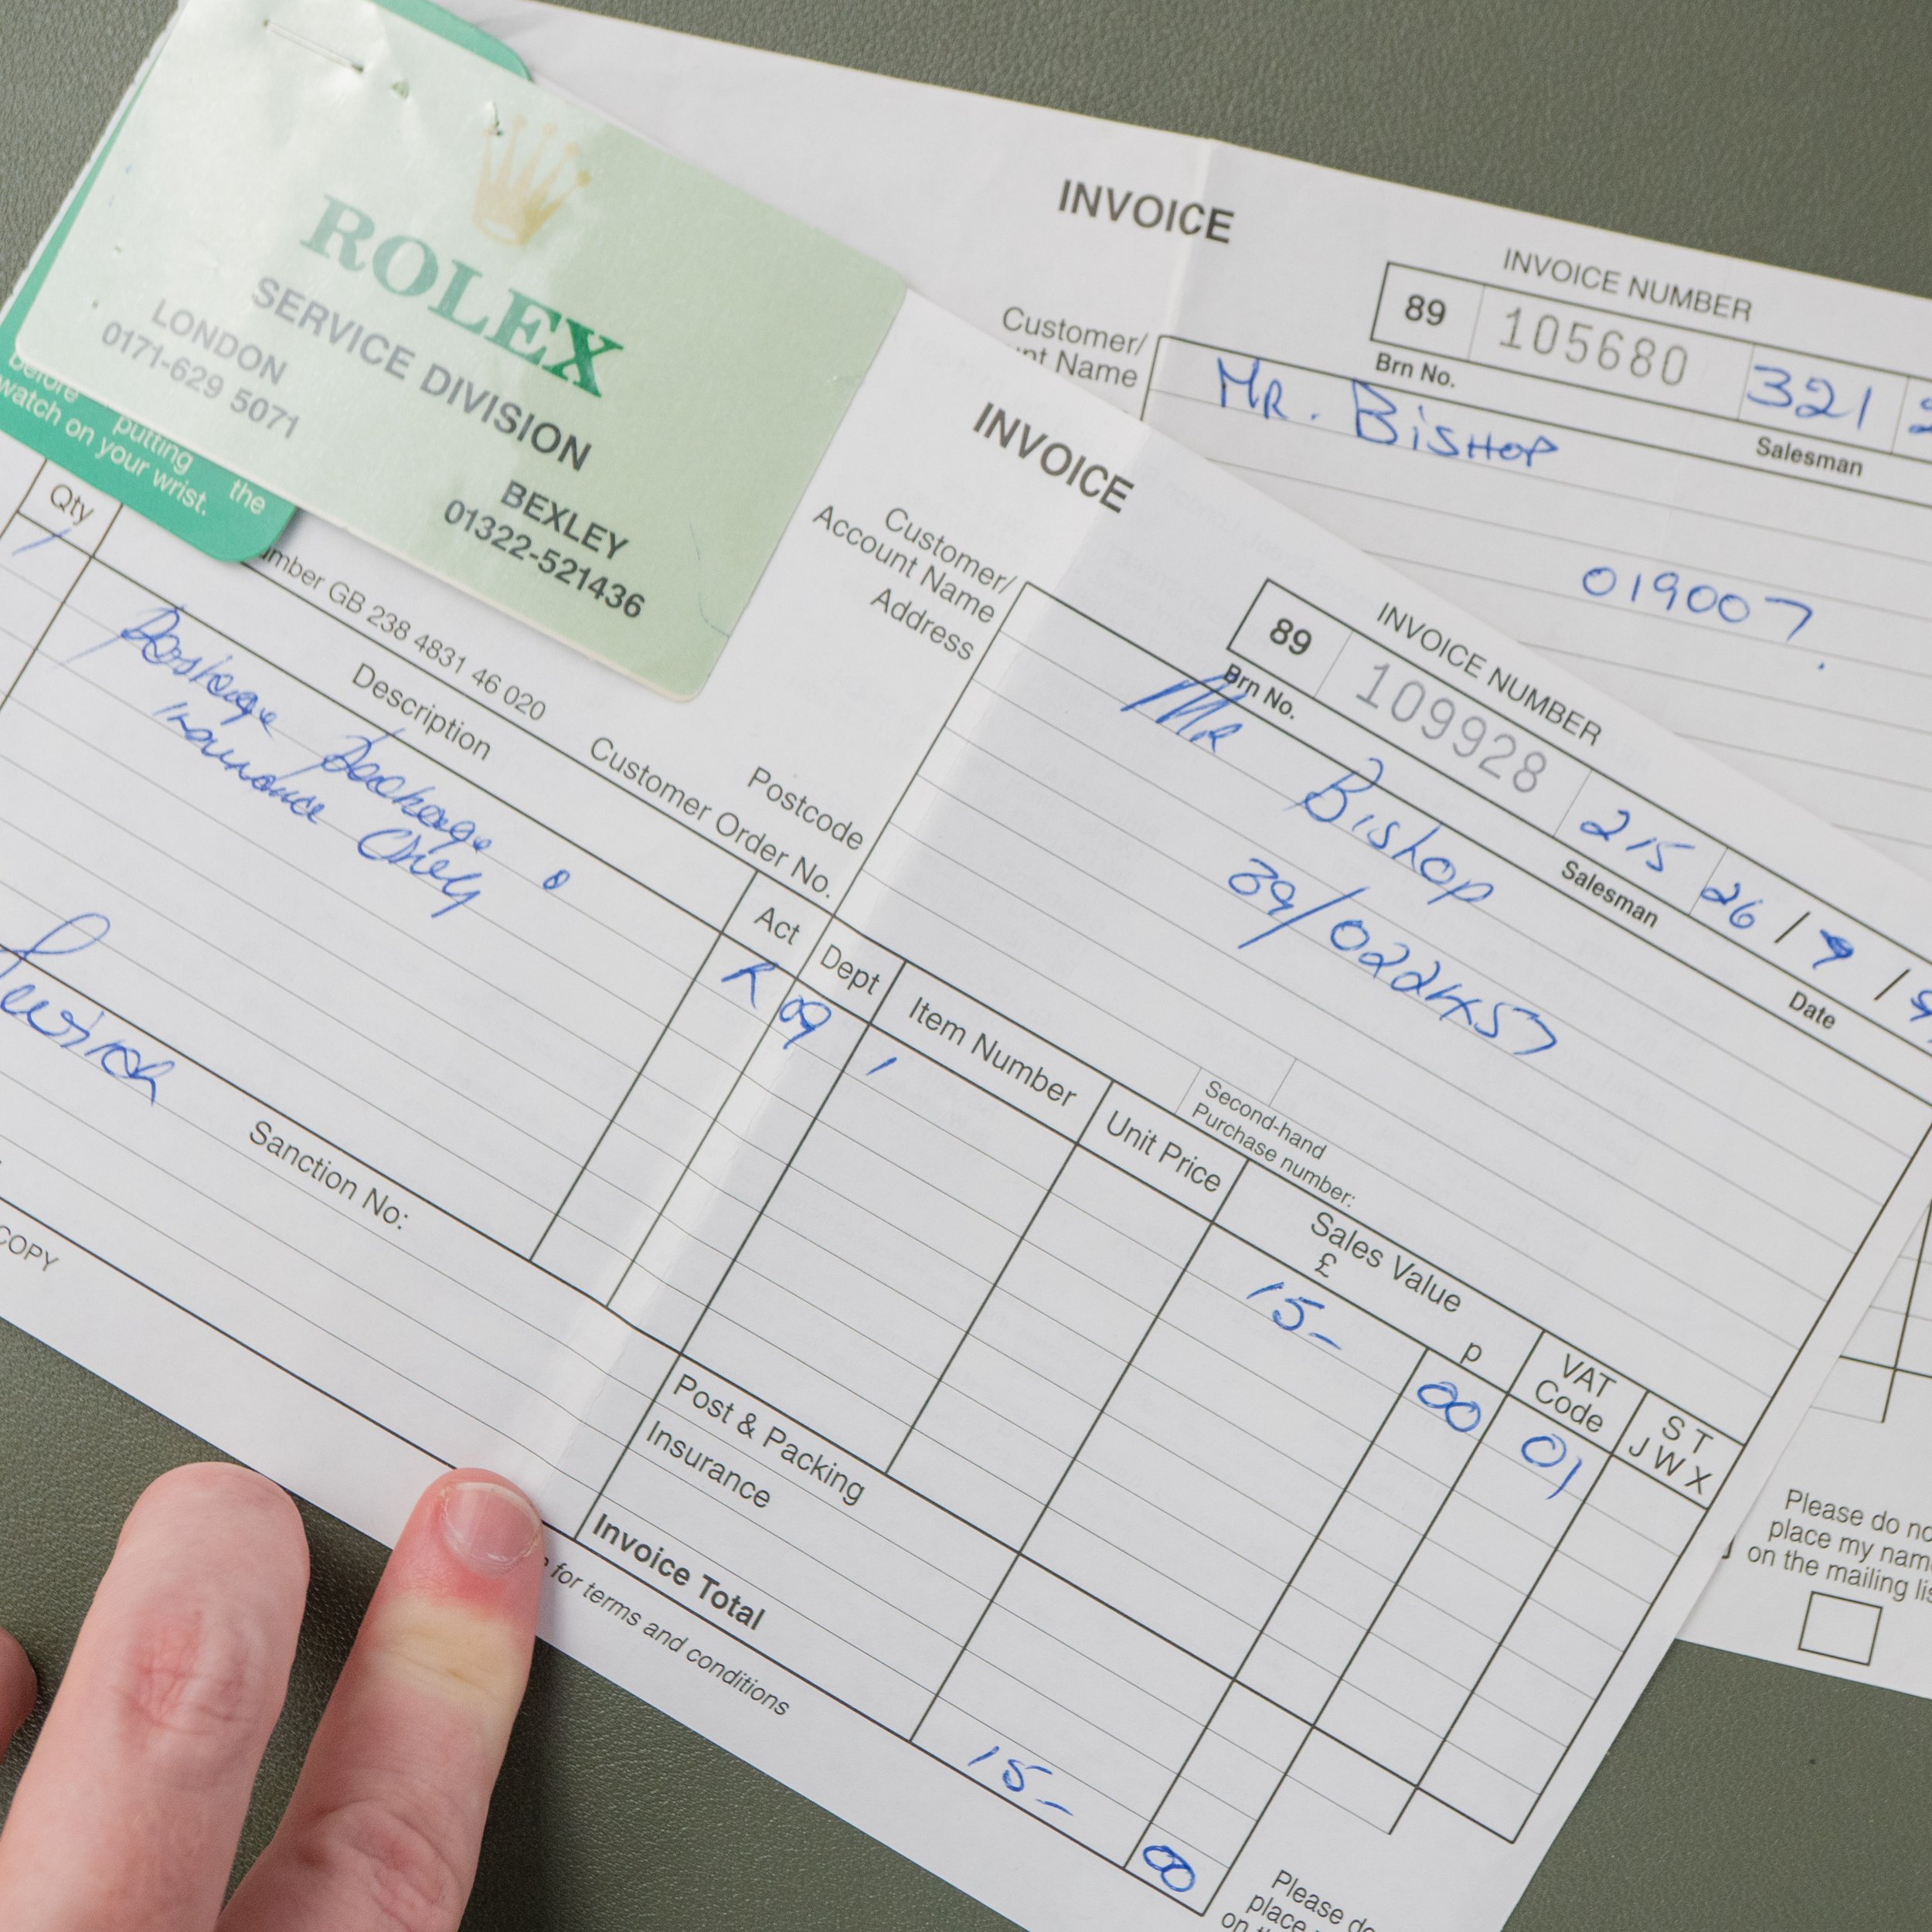 ROLEX
SERVICE DIVISION
LONDON
0171-629 5071
BEXLEY
01322-521436
before putting the
watch on your wrist.
INVOICE
INVOICE NUMBER
89 105680 321
Brn No.
Salesman
Customer/
Name
Mr. Bishop
019007.
Please do
place my
on the mailing
INVOICE
INVOICE NUMBER
89 109928 215 26/9/
Brn No.
Salesman
Date
Customer/
Account Name
Address
Mr Bishop
89/022457
Postcode
GB 238 4831 46 020
Customer Order No.
Second-hand
Purchase number:
Qty
Description
Act
Dept
Item Number
Unit Price
Sales Value
£
p
VAT
Code
S T
J W X
1
Postage Package &
Insurance Only
R 09 1
15- 00 01
Sanction No:
COPY
Post & Packing
Insurance
Invoice Total
15- 00
for terms and conditions
Please
place
on